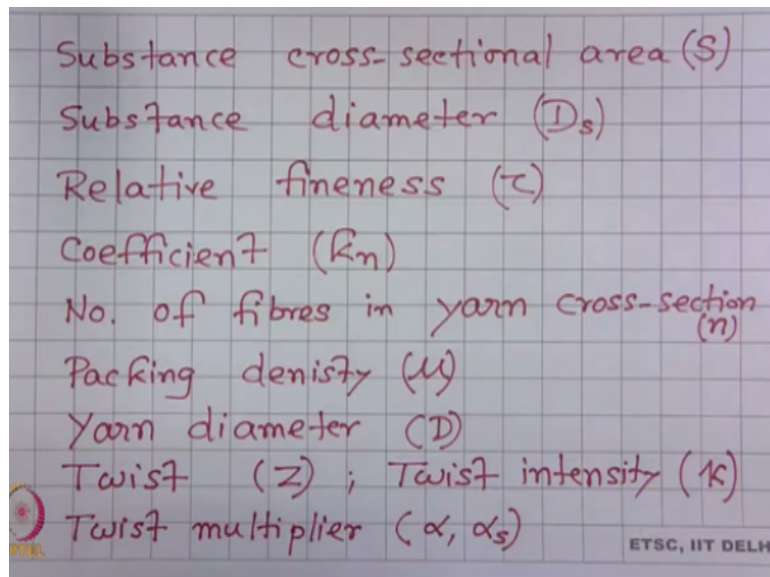 Substance cross-sectional area (S)
Substance diameter (Ds)
Relative fineness (τ)
Coefficient (kn)
No. of fibres in yarn cross-section
(n)
Packing denisty (μ)
Yarn diameter (D)
Twist (Z) ; Twist intensity (κ)
Twist multiplier (α, αs)
PTEL
ETSC, IIT DELH